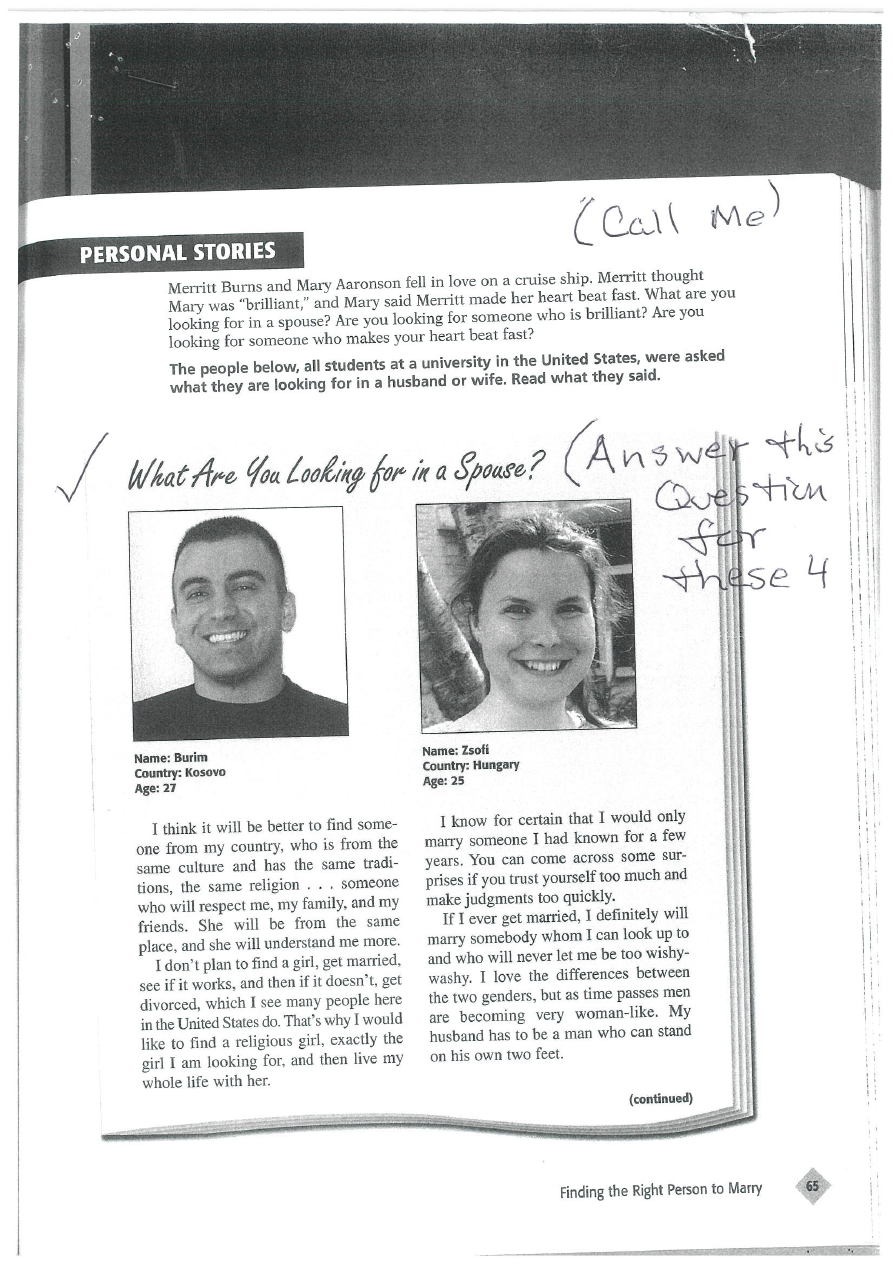 (Call Me)
PERSONAL STORIES
Merritt Burns and Mary Aaronson fell in love on a cruise ship. Merritt thought
Mary was “brilliant,” and Mary said Merritt made her heart beat fast. What are you
looking for in a spouse? Are you looking for someone who is brilliant? Are you
looking for someone who makes your heart beat fast?
The people below, all students at a university in the United States, were asked
what they are looking for in a husband or wife. Read what they said.
What Are You Looking for in a Spouse?
(Answer this
Question
for
these 4
Name: Burim
Country: Kosovo
Age: 27
I think it will be better to find some-
one from my country, who is from the
same culture and has the same tradi-
tions, the same religion . . . someone
who will respect me, my family, and my
friends. She will be from the same
place, and she will understand me more.
I don’t plan to find a girl, get married,
see if it works, and then if it doesn’t, get
divorced, which I see many people here
in the United States do. That’s why I would
like to find a religious girl, exactly the
girl I am looking for, and then live my
whole life with her.
Name: Zsofi
Country: Hungary
Age: 25
I know for certain that I would only
marry someone I had known for a few
years. You can come across some sur-
prises if you trust yourself too much and
make judgments too quickly.
If I ever get married, I definitely will
marry somebody whom I can look up to
and who will never let me be too wishy-
washy. I love the differences between
the two genders, but as time passes men
are becoming very woman-like. My
husband has to be a man who can stand
on his own two feet.
(continued)
Finding the Right Person to Marry 65